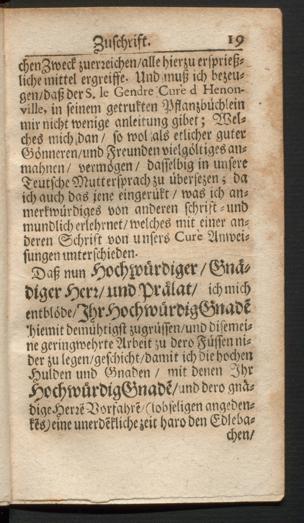 Zuschrift. 19
chen Zweck zuerzeichen/alle hierzu ersprieß-
liche mittel ergreiffe. Und muß ich bezeu-
gen/daß der S. le Gendre Cure d Henon-
ville, in seinem getrukten Pflanzbüchlein
mir nicht wenige anleitung gibet; Wel-
ches mich dan/ so wol als etlicher guter
Gönneren/und Freunden vielgöltiges an-
mahnen/ vermögen/ dasselbig in unsere
Teutsche Muttersprach zu übersezen; da
ich auch das jene eingerükt/ was ich an-
merkwürdiges von anderen schrift- und
mundlich erlehrnet/welches mit einer an-
deren Schrift von unsers Cure Anwei-
sungen unterschieden.
Daß nun Hochwürdiger/ Gnä-
diger Herr/ und Prälat/ ich mich
entblöde/Ihr HochwürdigGnadẽ
hiemit demühtigst zugrüssen/und diesemei-
ne geringwehrte Arbeit zu dero Füssen ni-
der zu legen/geschicht/damit ich die hochen
Hulden und Gnaden/ mit denen Ihr
HochwürdigGnadẽ/und dero gnä-
dige Herrẽ Vorfahrẽ/(lobseligen angeden-
kẽs) eine unerdẽkliche zeit haro den Edleba-
chen/